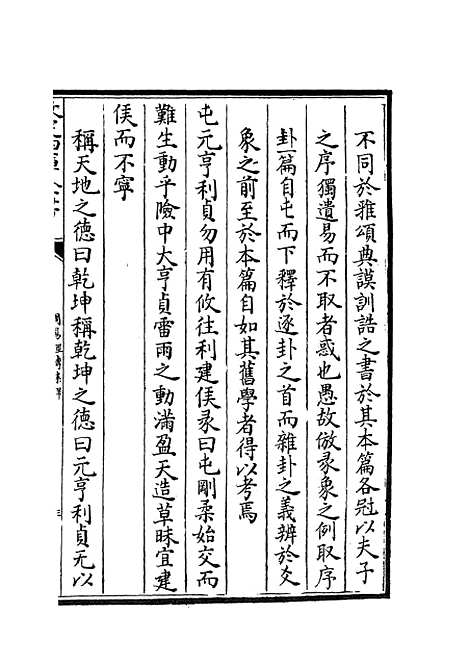 不同於雅頌典謨訓誥之書於其本篇各冠以夫子
之序獨遺易而不取者惑也愚故倣彖象之例取序
卦一篇自屯而下釋於逐卦之首而雜卦之義辨於爻
象之前至於本篇自如其舊學者得以考焉
屯元亨利貞勿用有攸往利建侯彖曰屯剛柔始交而
難生動乎險中大亨貞雷雨之動滿盈天造草昧宜建
侯而不寧
稱天地之德曰乾坤稱乾坤之德曰元亨利貞无以